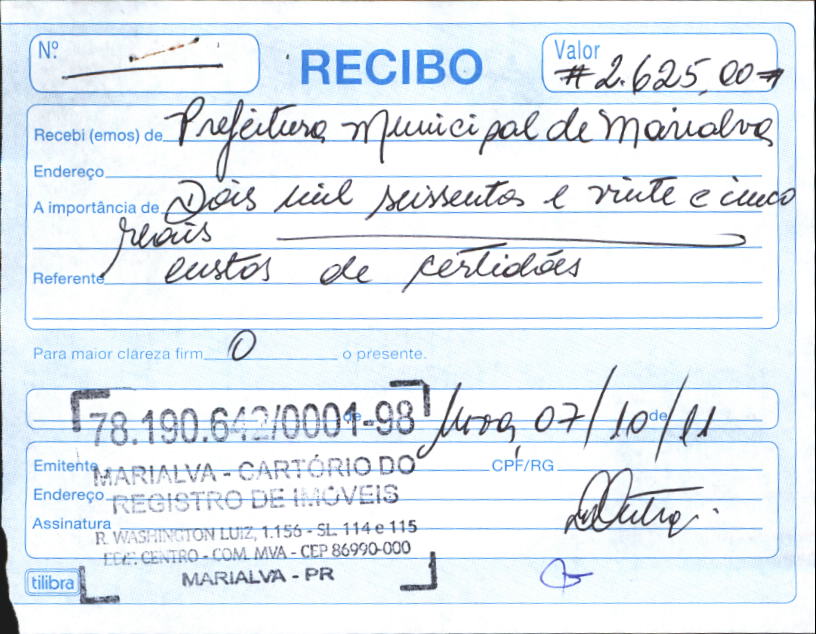 Nº
RECIBO
Valor
#2.625,00#
Recebi (emos) de Prefeitura Municipal de Marialva
Endereço
A importância de Dois mil seissentos e vinte cinco
reais
Referente custos de certidões
Para maior clareza firm O o presente.
78.190.642/0001-98 de Mva, 07/10/11 de
Emitente MARIALVA - CARTÓRIO DO CPF/RG
Endereço REGISTRO DE IMÓVEIS
Assinatura
R. WASHINGTON LUIZ, 1.156 - SL. 114 e 115
EDIF. CENTRO - COM. MVA - CEP 86990-000
tilibra MARIALVA - PR